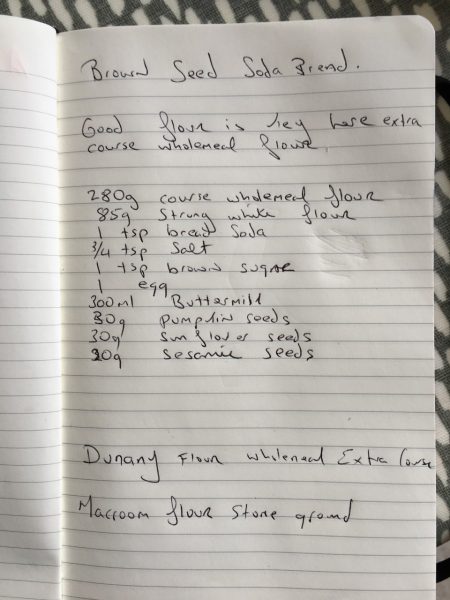 Brown Seed Soda Bread.
Good flour is key here extra
course wholemeal flour.
280g course wholemeal flour
85g strong white flour
1 tsp bread Soda
3/4 tsp Salt
1 tsp brown sugar
1 egg
300ml Buttermilk
30g pumpkin seeds
30g sunflower seeds
30g sesamie seeds
Dunany Flour wholemeal Extra Course
Macroom flour Stone ground